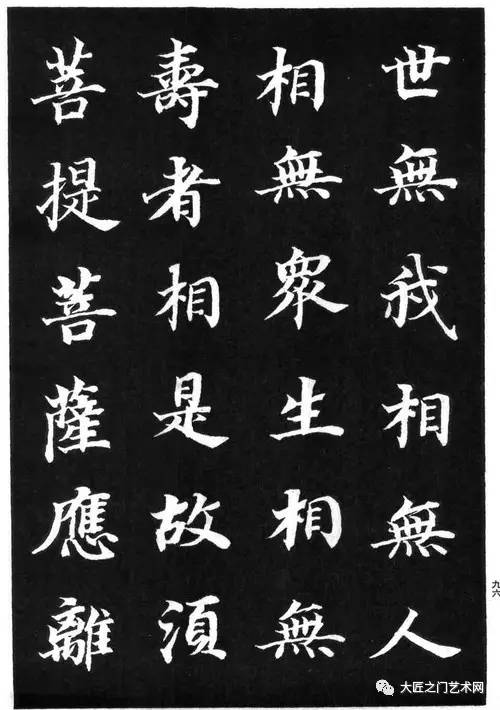 世無我相無人
相無衆生相無
壽者相是故須
菩提菩薩應離
九六
大匠之门艺术网